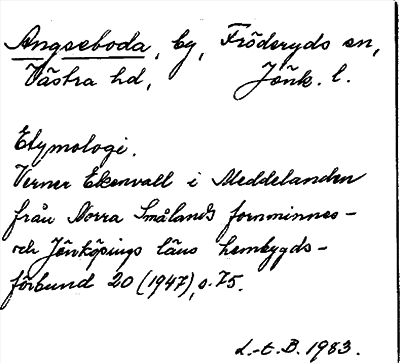 Angseboda, by, Fröderyds sn,
Västra hd, Jönk. l.
Etymologi.
Verner Ekenvall i Meddelanden
från Norra Smålands fornminnes-
och Jönköpings läns hembygds-
förbund 20 (1947), s. 75.
L.-E. B. 1983.